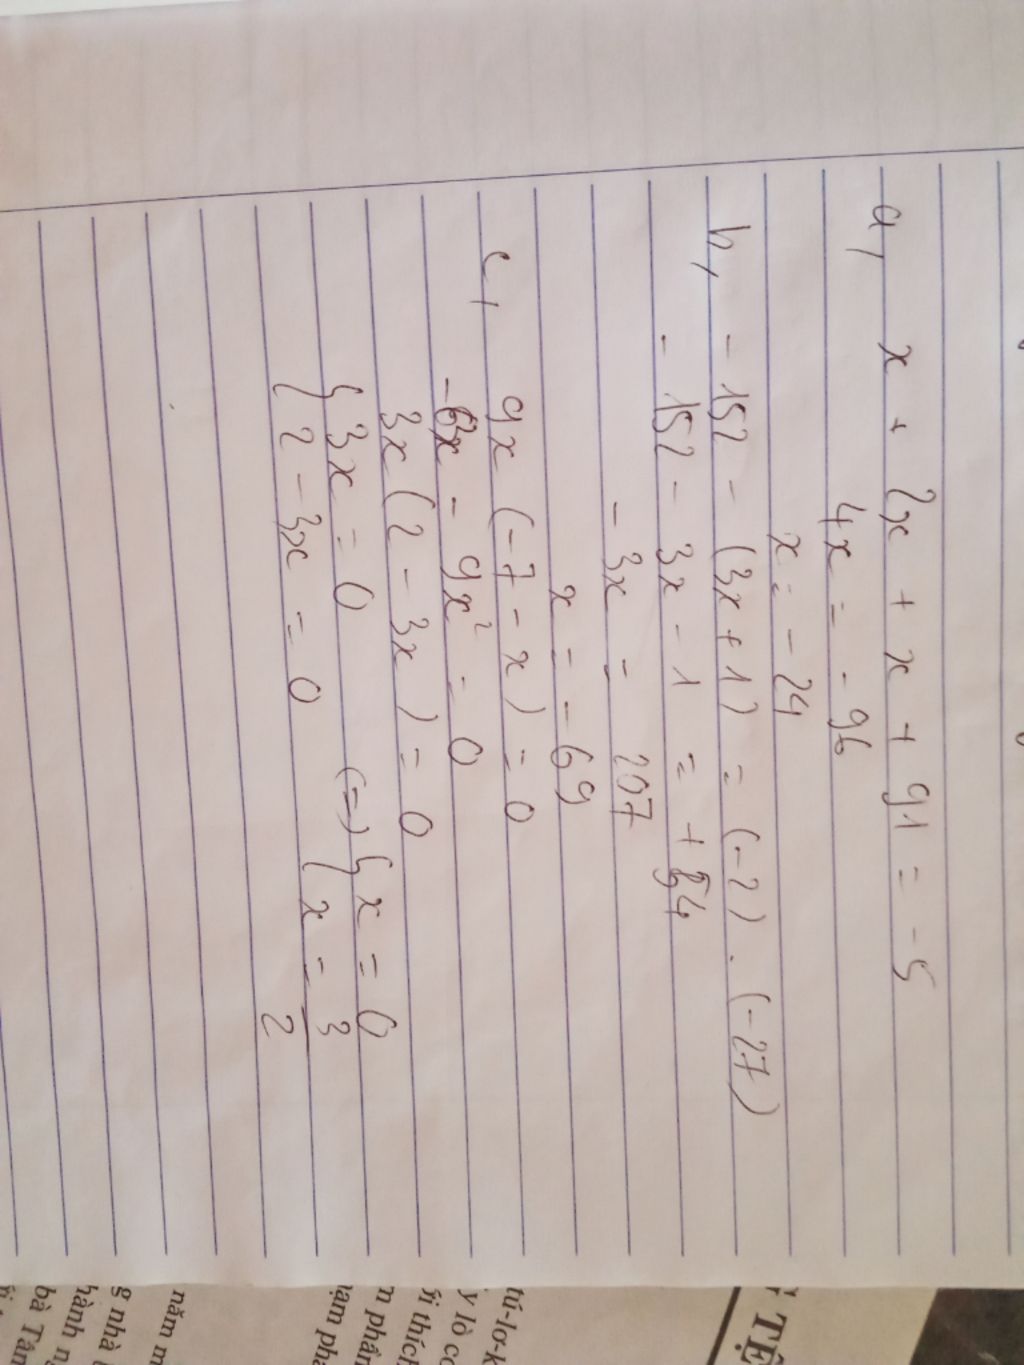 a, x + 2x + x + 91 = -5
4x = -96
x = -24
b, -152 - (3x+1) = (-2) . (-27)
-152 - 3x - 1 = +54
-3x = 207
x = -69
c, 9x (-7-x) = 0
- 9x² = 0
3x(2 - 3x) = 0
{ 3x = 0 (=) { x = 0
{ 2 - 3x = 0 { x = 3/2
TỆ
tú-lơ-k
y lò cơ
ời thích
n phần
nạm phạ
năm m
g nhà
hành n
bà Tân